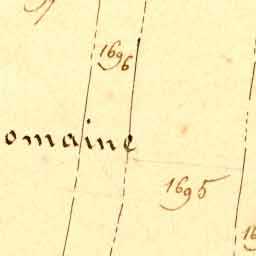 1696
omaine
1695
16